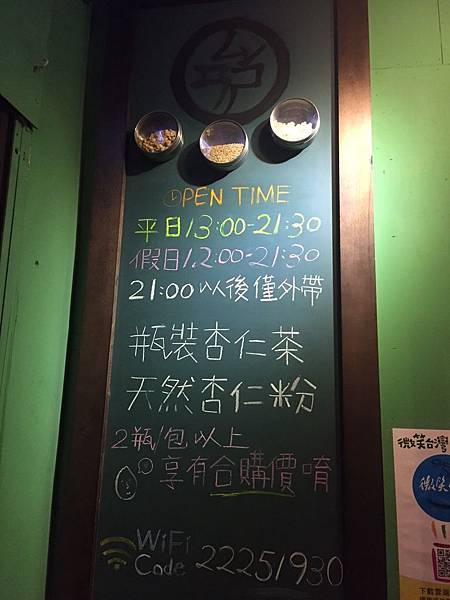 OPEN TIME
平日13:00-21:30
假日12:00-21:30
21:00以後僅外帶
瓶裝杏仁茶
天然杏仁粉
2瓶/包以上
享有合購價唷
WiFi
Code 22251930
微笑台灣